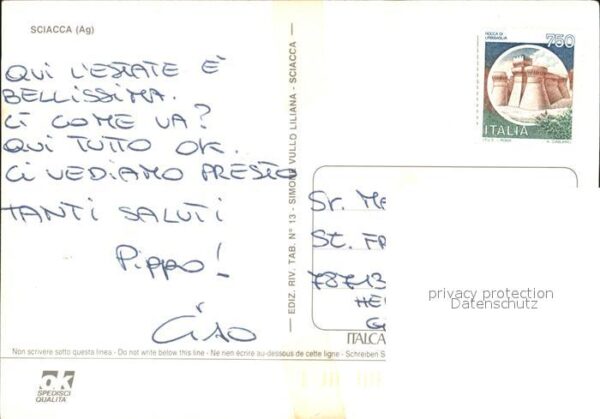 SCIACCA (Ag)
QUI L'ESTATE È
BELLISSIMA.
CI COME VA?
QUI TUTTO OK.
CI VEDIAMO PRESTO
TANTI SALUTI
Pippo!
Ciao
EDIZ. RIV. TAB. N° 13 - SIMONE VULLO LILIANA - SCIACCA
ROCCA DI URBISAGLIA
750
ITALIA
Sr. MA
St. FR
78713
HE
G
privacy protection
Datenschutz
ITALCA
Non scrivere sotto questa linea - Do not write below this line - Ne rien écrire au-dessous de cette ligne - Schreiben S
ok
SPEDISCI
QUALITÀ